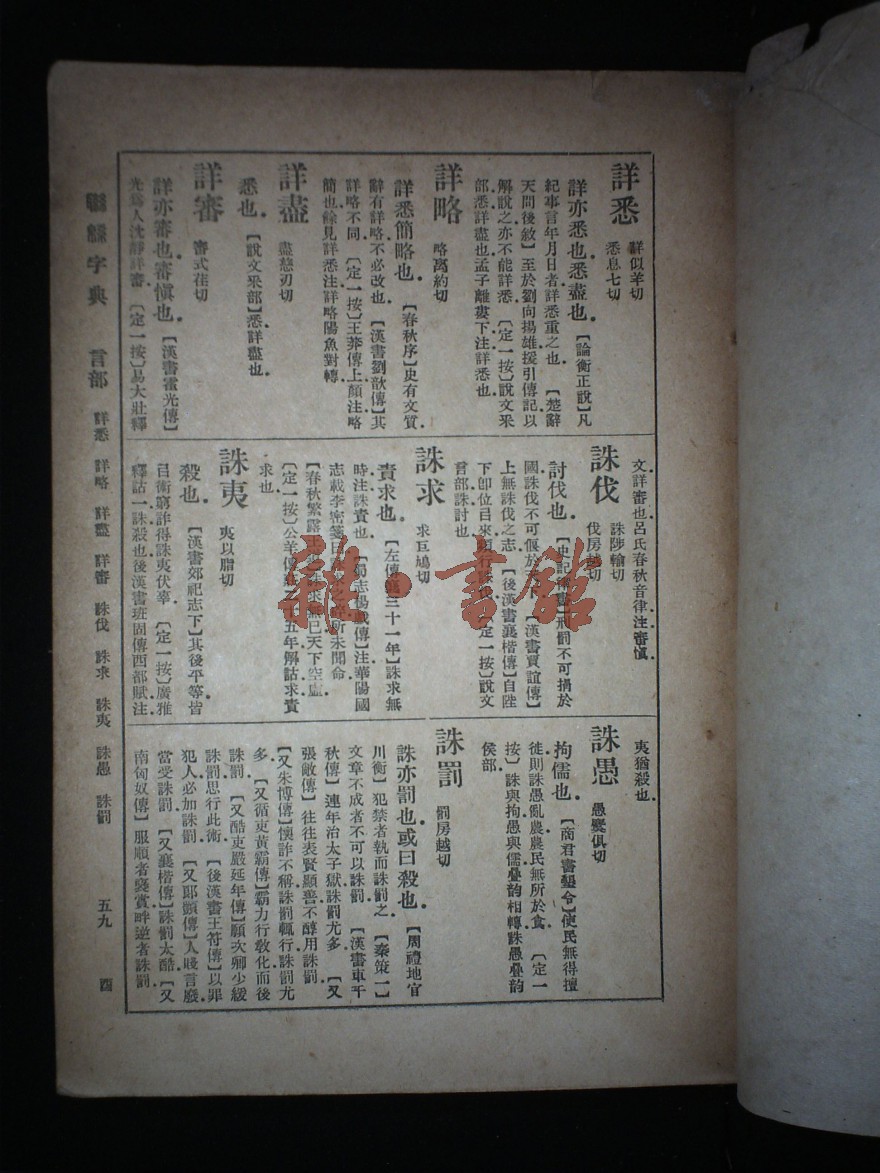 詳悉
詳似羊切
悉息七切
詳亦悉也悉盡也。【論衡正說】凡
紀事言年月日者詳悉重之也 【楚辭
天問後敘】至於劉向揚雄援引傳記以
解說之亦不能詳悉 【定一按】說文釆
部悉詳盡也孟子離婁下注詳悉也
詳略
略离約切
詳悉簡略也。【春秋序】史有文質
辭有詳略不必改也【漢書劉歆傳】其
詳略不同 【定一按】王莽傳上顏注略
簡也餘見詳悉注詳略陽魚對轉
詳盡
盡慈刃切
悉也。【說文釆部】悉詳盡也
詳審
審式荏切
詳亦審也審愼也。【漢書霍光傳】
光爲人沈靜詳審 【定一按】易大壯釋
文詳審也呂氏春秋音律注審愼
誅伐
誅陟輸切
伐房越切
討伐也。【史記律書】刑罰不可捐於
國誅伐不可偃於 【漢書賈誼傳】
上無誅伐之志 【後漢書襄楷傳】自陛
下卽位㠯來頻行誅伐 【定一按】說文
言部誅討也
誅求
求巨鳩切
責求也。【左傳襄三十一年】誅求無
時注誅責也 【蜀志楊戲傳】注華陽國
志載李密 所未聞命
【春秋繁露王 誅求無已天下空虛
【定一按】公羊傳 十五年解詁求責
求也
誅夷
夷以脂切
殺也。【漢書郊祀志下】其後平等皆
㠯術窮詐得誅夷伏辜 【定一按】廣雅
釋詁一誅殺也後漢書班固傳西都賦注
夷猶殺也
誅愚
愚麌俱切
拘儒也。【商君書墾令】使民無得擅
徙則誅愚亂農農民無所於食 【定一
按】誅與拘愚與儒疊韵相轉誅愚疊韵
侯部
誅罰
罰房越切
誅亦罰也或曰殺也。【周禮地官
川衡】犯禁者執而誅罰之 【秦策一】
文章不成者不可以誅罰 【漢書車千
秋傳】連年治太子獄誅罰尤多 【又
張敞傳】往往表賢顯善不醇用誅罰
【又朱博傳】懷詐不稱誅罰輒行誅罰尤
多 【又循吏黃霸傳】霸力行敎化而後
誅罰 【又酷吏嚴延年傳】願次卿少緩
誅罰思行此術 【後漢書王符傳】以罪
犯人必加誅罰 【又郞顗傳】人賤言廢
當受誅罰 【又襄楷傳】誅罰太酷 【又
南匈奴傳】服順者襃賞畔逆者誅罰
聯緜字典 言部 詳悉 詳略 詳盡 詳審 誅伐 誅求 誅夷 誅愚 誅罰 五九 酉
雜·書館